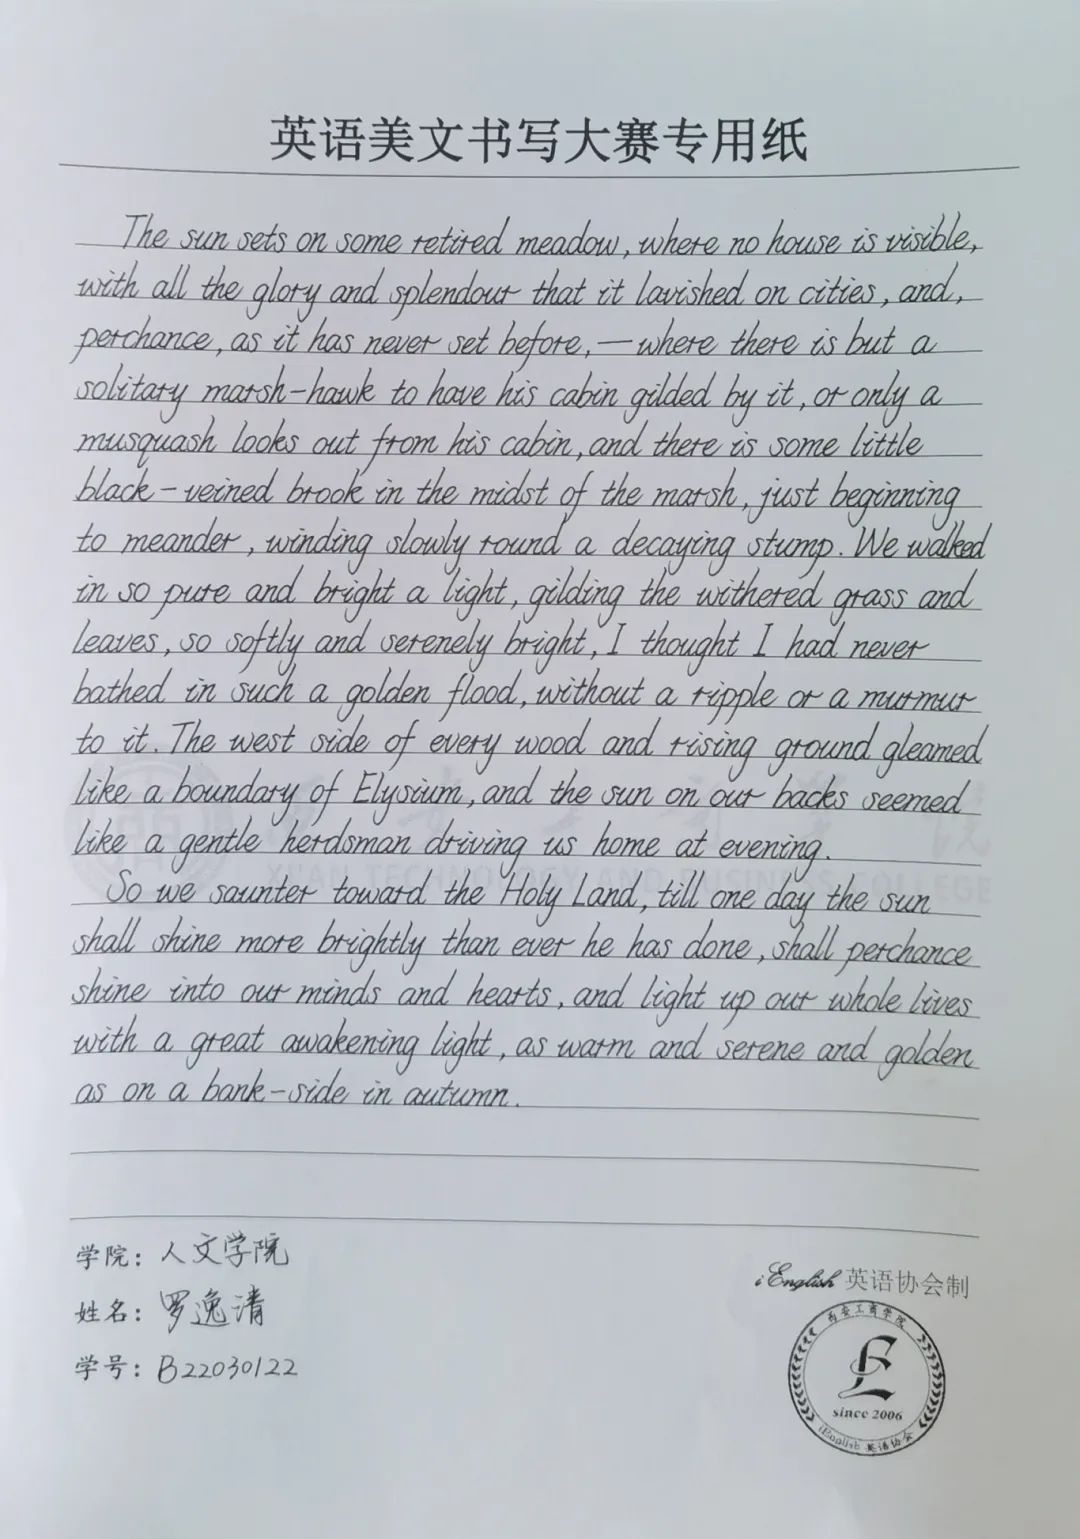 英语美文书写大赛专用纸
The sun sets on some retired meadow, where no house is visible,
with all the glory and splendour that it lavished on cities, and,
perchance, as it has never set before, —where there is but a
solitary marsh-hawk to have his cabin gilded by it, or only a
musquash looks out from his cabin, and there is some little
black-veined brook in the midst of the marsh, just beginning
to meander, winding slowly round a decaying stump. We walked
in so pure and bright a light, gilding the withered grass and
leaves, so softly and serenely bright, I thought I had never
bathed in such a golden flood, without a ripple or a murmur
to it. The west side of every wood and rising ground gleamed
like a boundary of Elysium, and the sun on our backs seemed
like a gentle herdsman driving us home at evening.
XI'AN TECHNOLOGY AND BUSINESS COLLEGE
So we saunter toward the Holy Land, till one day the sun
shall shine more brightly than ever he has done, shall perchance
shine into our minds and hearts, and light up our whole lives
with a great awakening light, as warm and serene and golden
as on a bank-side in autumn.
学院：人文学院
姓名：罗逸清
学号：B22030122
iEnglish 英语协会制
西安工商学院
E
since 2006
iEnglish 英语协会